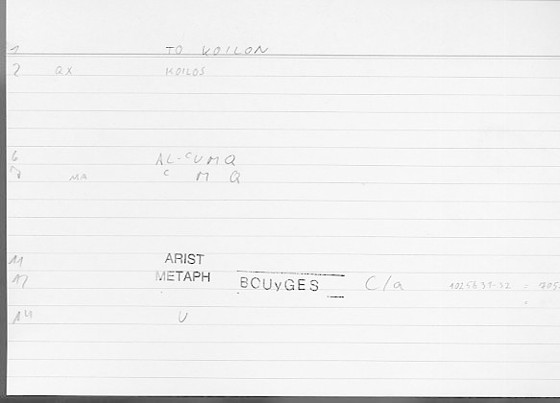 1 TO KOILON
2 QX KOILOS
6 AL-CUMQ
7 MA C M Q
11 ARIST
12 METAPH BOUyGES C/a 1025b31-32 = 705
14 U